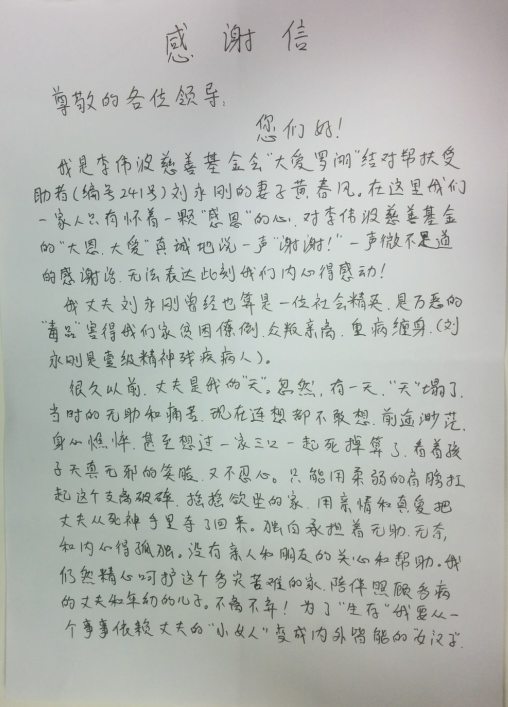 感谢信
尊敬的各位领导：
您们好！
我是李伟波慈善基金会“大爱罗湖”结对帮扶受
助者（编号241号）刘永刚的妻子黄春凤。在这里我们
一家人只有怀着一颗“感恩”的心，对李伟波慈善基金
的“大恩、大爱”真诚地说一声“谢谢！”一声微不足道
的感谢话，无法表达此刻我们内心得感动！
我丈夫刘永刚曾经也算是一位社会精英，是万恶的
“毒品”害得我们家贫困潦倒、众叛亲离、重病缠身、（刘
永刚是壹级精神残疾病人）。
很久以前，丈夫是我的“天”。忽然，有一天，“天”塌了，
当时的无助和痛苦，现在连想都不敢想，前途渺茫、
身心憔悴，甚至想过一家三口一起死掉算了，看着孩
子天真无邪的笑脸，又不忍心。只能用柔弱的肩膀扛
起这个支离破碎、摇摇欲坠的家，用亲情和真爱把
丈夫从死神手里夺了回来。独自承担着无助、无奈，
和内心得孤独。没有亲人和朋友的关心和帮助。我
仍然精心呵护这个多灾苦难的家，陪伴照顾多病
的丈夫和年幼的儿子。不离不弃！为了“生存”我要从一
个事事依赖丈夫的“小女人”变成内外皆能的“女汉子”，